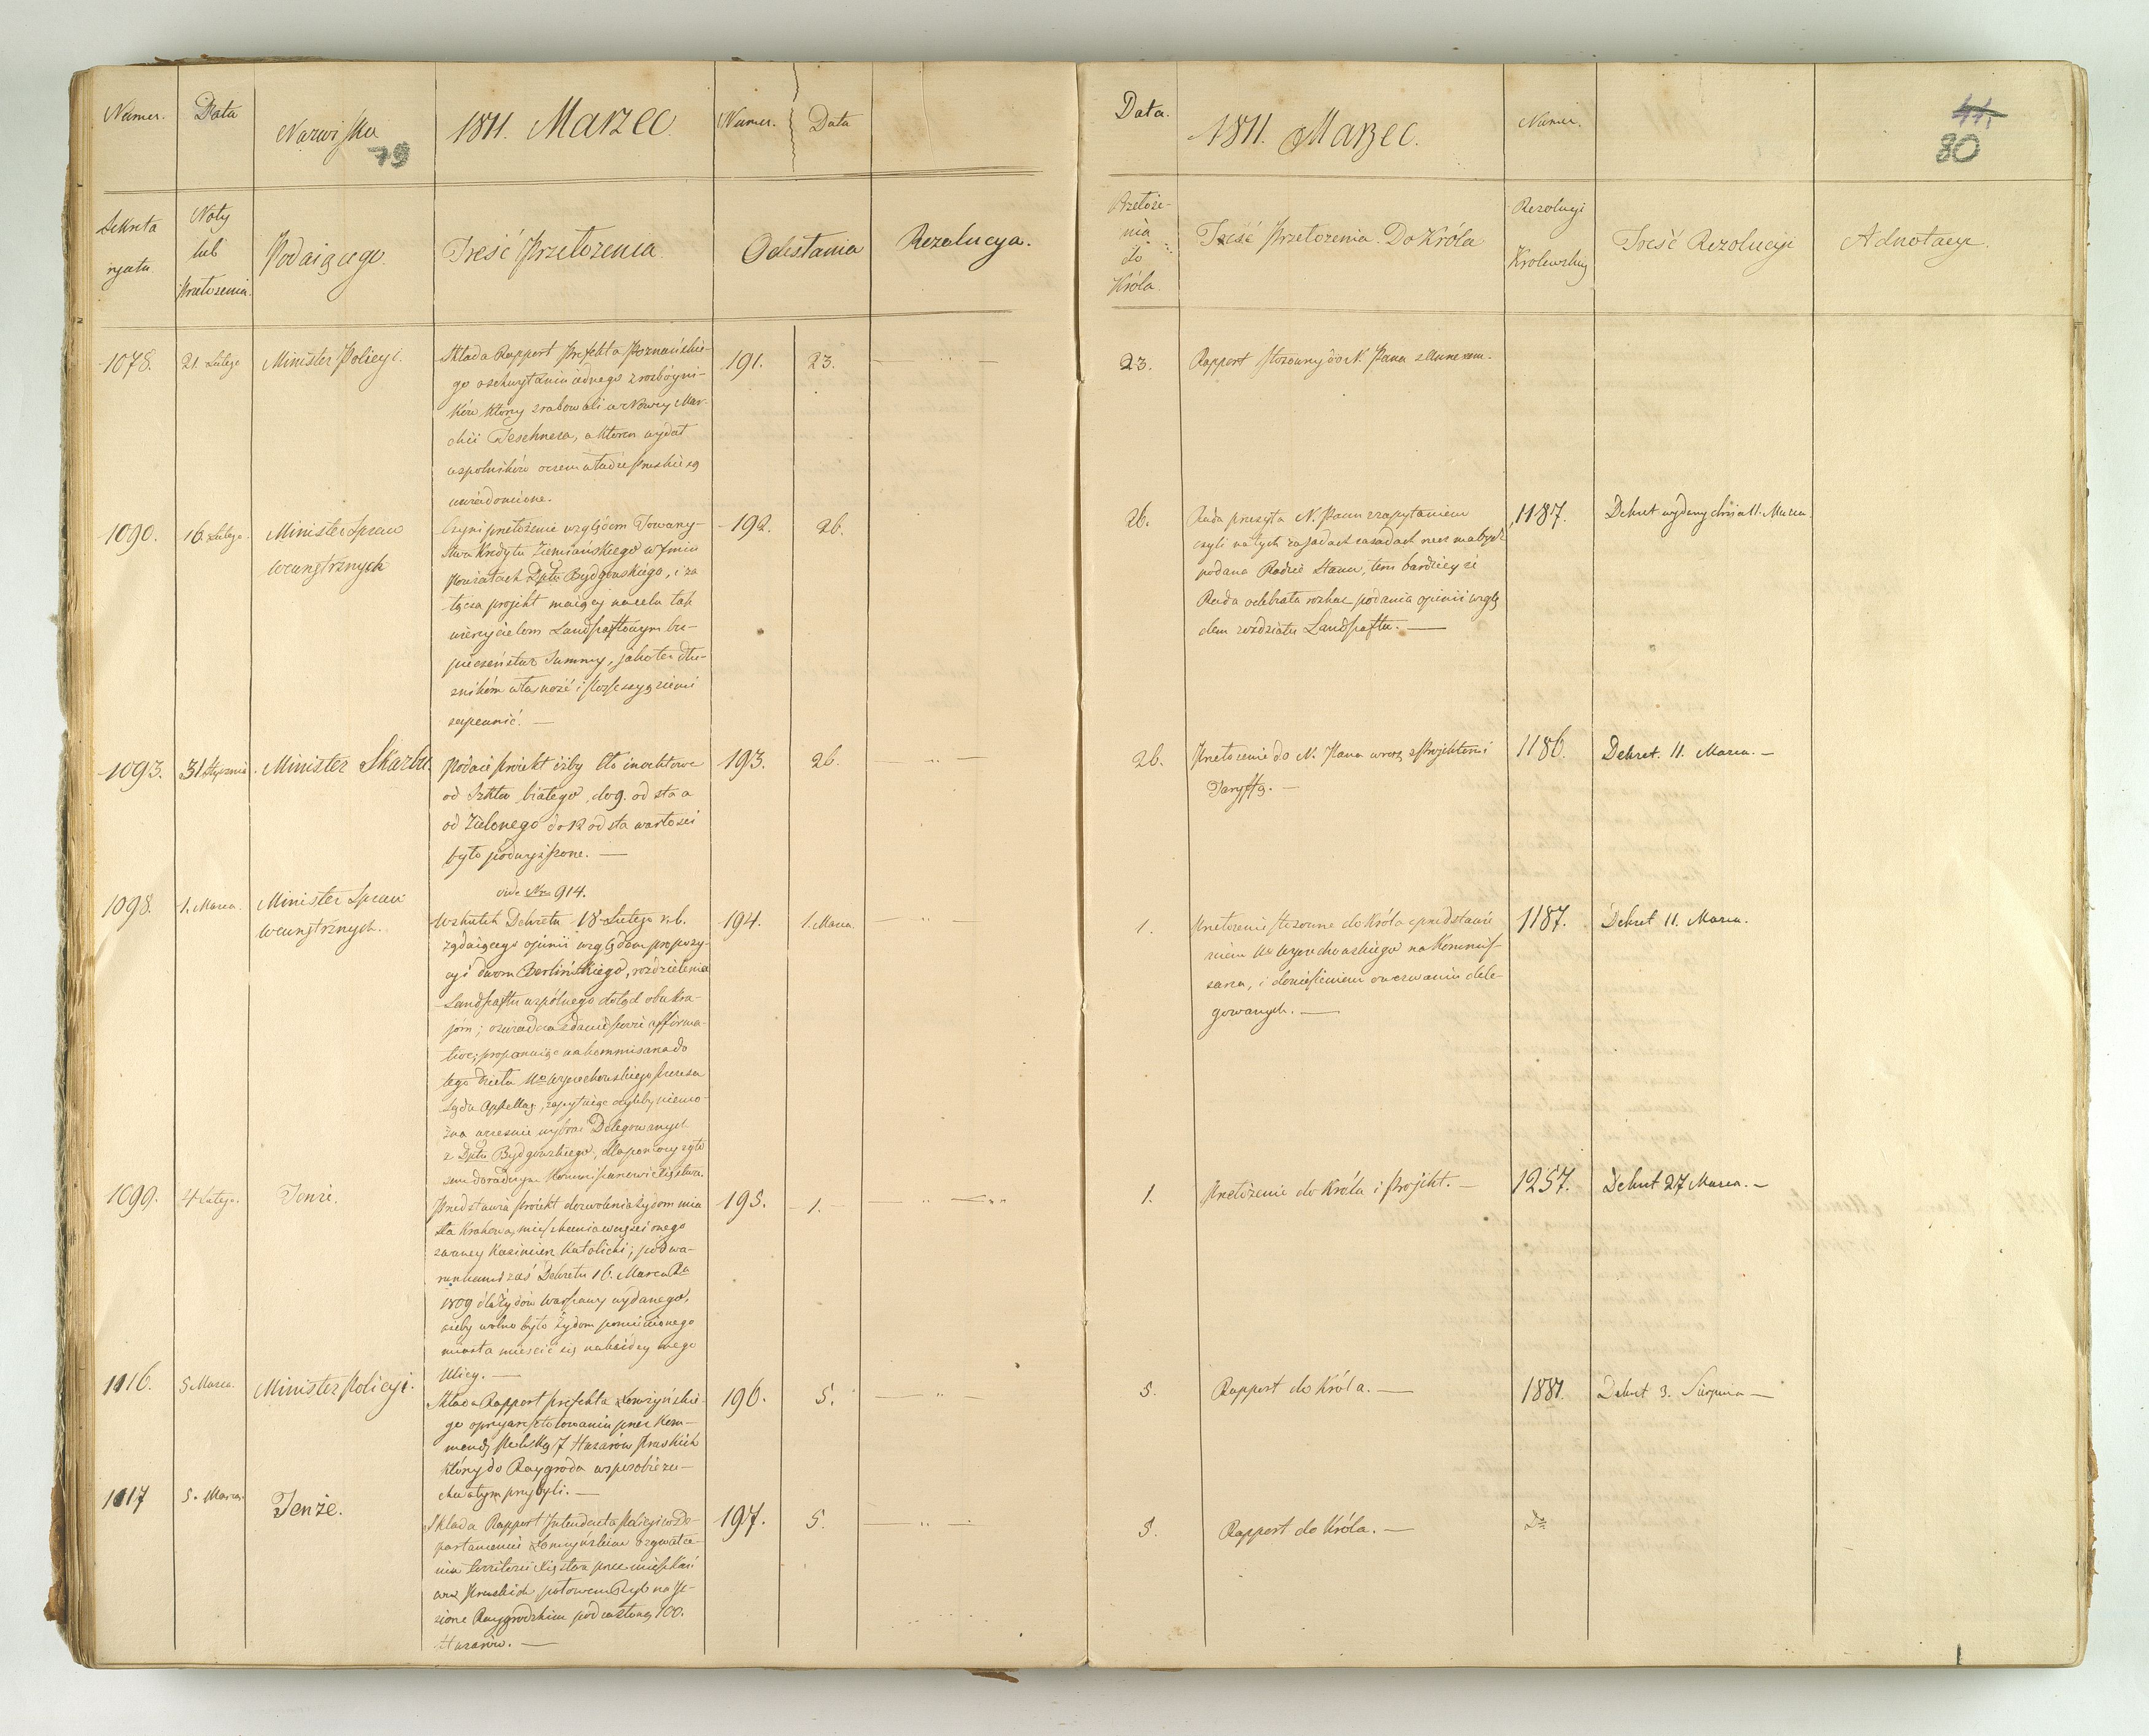 Numer.
Data
Nazwiska
79
1811. Marzec.
Numer.
Data
Sekreta
ryatu
Noty
lub
Przełożenia.
Podaiącego.
Treść Przełożenia
Odesłania
Rezolucya.
1078.
21. Lutego
Minister Policyi.
Składa Rapport Prefekta Poznańskie-
go o schwytaniu iednego z rozbóyni-
ków którzy zrabowali w Nowey Mar-
chii Teschnera, a którem wydał
wspolników o czem władze Pruskie są
uwiadomione.
191.
23.
1090.
16. Lutego.
Minister Spraw
wewnętrznych
Czyni przełożenie względem Towarzy-
stwa Kredytu Ziemiańskiego w
Powiatach Dptu Bydgoskiego, i za
łącza projekt maiący na celu tak
wierzycielom Landszaftowym be-
pieczeństwo Summy, jako też dłu-
żnikom własność i Possessyą ziemi
zapewnić. —
192.
26.
1093.
31 Stycznia.
Minister Skarbu
Podaie Proiekt iżby Cło
od Szkła białego, do 9. od sta a
od Zielonego do 12 od sta wartości
było podwyższone. —
193.
26.
1098.
1. Marca.
Minister Spraw
wewnętrznych.
vide Nro 914.
Wskutek Dekretu 18 Lutego r. b.
żądaiącego opinii względem propozy-
cyi dworu Berlińskiego, rozdzielenia
Landszaftu wspólnego dotąd obu kra-
jom; oświadcza zdanie swoie afforma-
tive; proponuiąc na kommissarza do
tego dzieła Wo Wyczechowskiego Prezesa
Sądu Appellacy, zapytuiąc czyliby niemo-
żna wcześnie wybrać Delegowanych
z Dptu Bydgoskiego, dla pomocy
Kommissarzowi Xięstwa.
194.
1. Marca.
1099.
4 Lutego.
Tenże.
Przedstawia Proiekt dozwolenia Żydom mia
sta Krakowa, mieszkania w części onego
zwaney Kazimierz Katolicki; pod wa-
runkami zaś Dekretu 16. Marca Ru
1809 dla Żydów Warszawy wydanego,
żeby wolno było Żydom pomienionego
miasta mieścić się na każdey iego
Ulicy. —
195.
1.
1116.
5 Marca.
Minister Policyi.
Składa Rapport Prefekta Łomżyńskie-
go o przyaresztowaniu przez Kom-
mendę Polską 7 Huzarów Pruskich
którzy do Raygroda w sposobie zu-
chwałym przybyli. —
196.
5.
1117
5. Marca.
Tenże.
Składa Rapport Intendenta Policyi w De-
partamencie Łomżyńskim o zgwałce-
niu territorii Xięstwa przez mieszkań
ców Pruskich połowem Ryb na Je-
ziorze Raygrodzkim pod zasłoną 100.
Huzarów. —
197.
5.
Data.
1811. Marzec.
Numer.
41.
80
Przełoże-
nia
do
Króla.
Treść Przełożenia Do Króla
Rezolucyi
Królewskiey
Treść Rezolucyi
Adnotacye.
23.
Rapport stosowny do N. Pana z Annexem.
26.
Rada przesyła N. Panu z zapytaniem
czyli na tych zasadach zasadach rzecz ma być
podana Radzie Stanu, tem bardziey że
Rada odebrała rozkaz podania opinii wzglę
dem rozdziału Landszaftu. —
1187.
Dekret wydany dnia 11. Marca.
26.
Przełożenie do N. Pana wraz z Projektem i
Taryffą. —
1186.
Dekret. 11. Marca. —
1.
Przełożenie stosowne do Króla z przedstawie
niem Wo Wyczechowskiego na Kommis-
sarza, i doniesieniem o wezwaniu dele-
gowanych. —
1187.
Dekret 11. Marca.
1.
Przełożenie do Króla i Projekt. —
1257.
Dekret 27 Marca. —
5.
Rapport do Króla. —
1881.
Dekret 3. Sierpnia —
5.
Rapport do Króla. —
Do